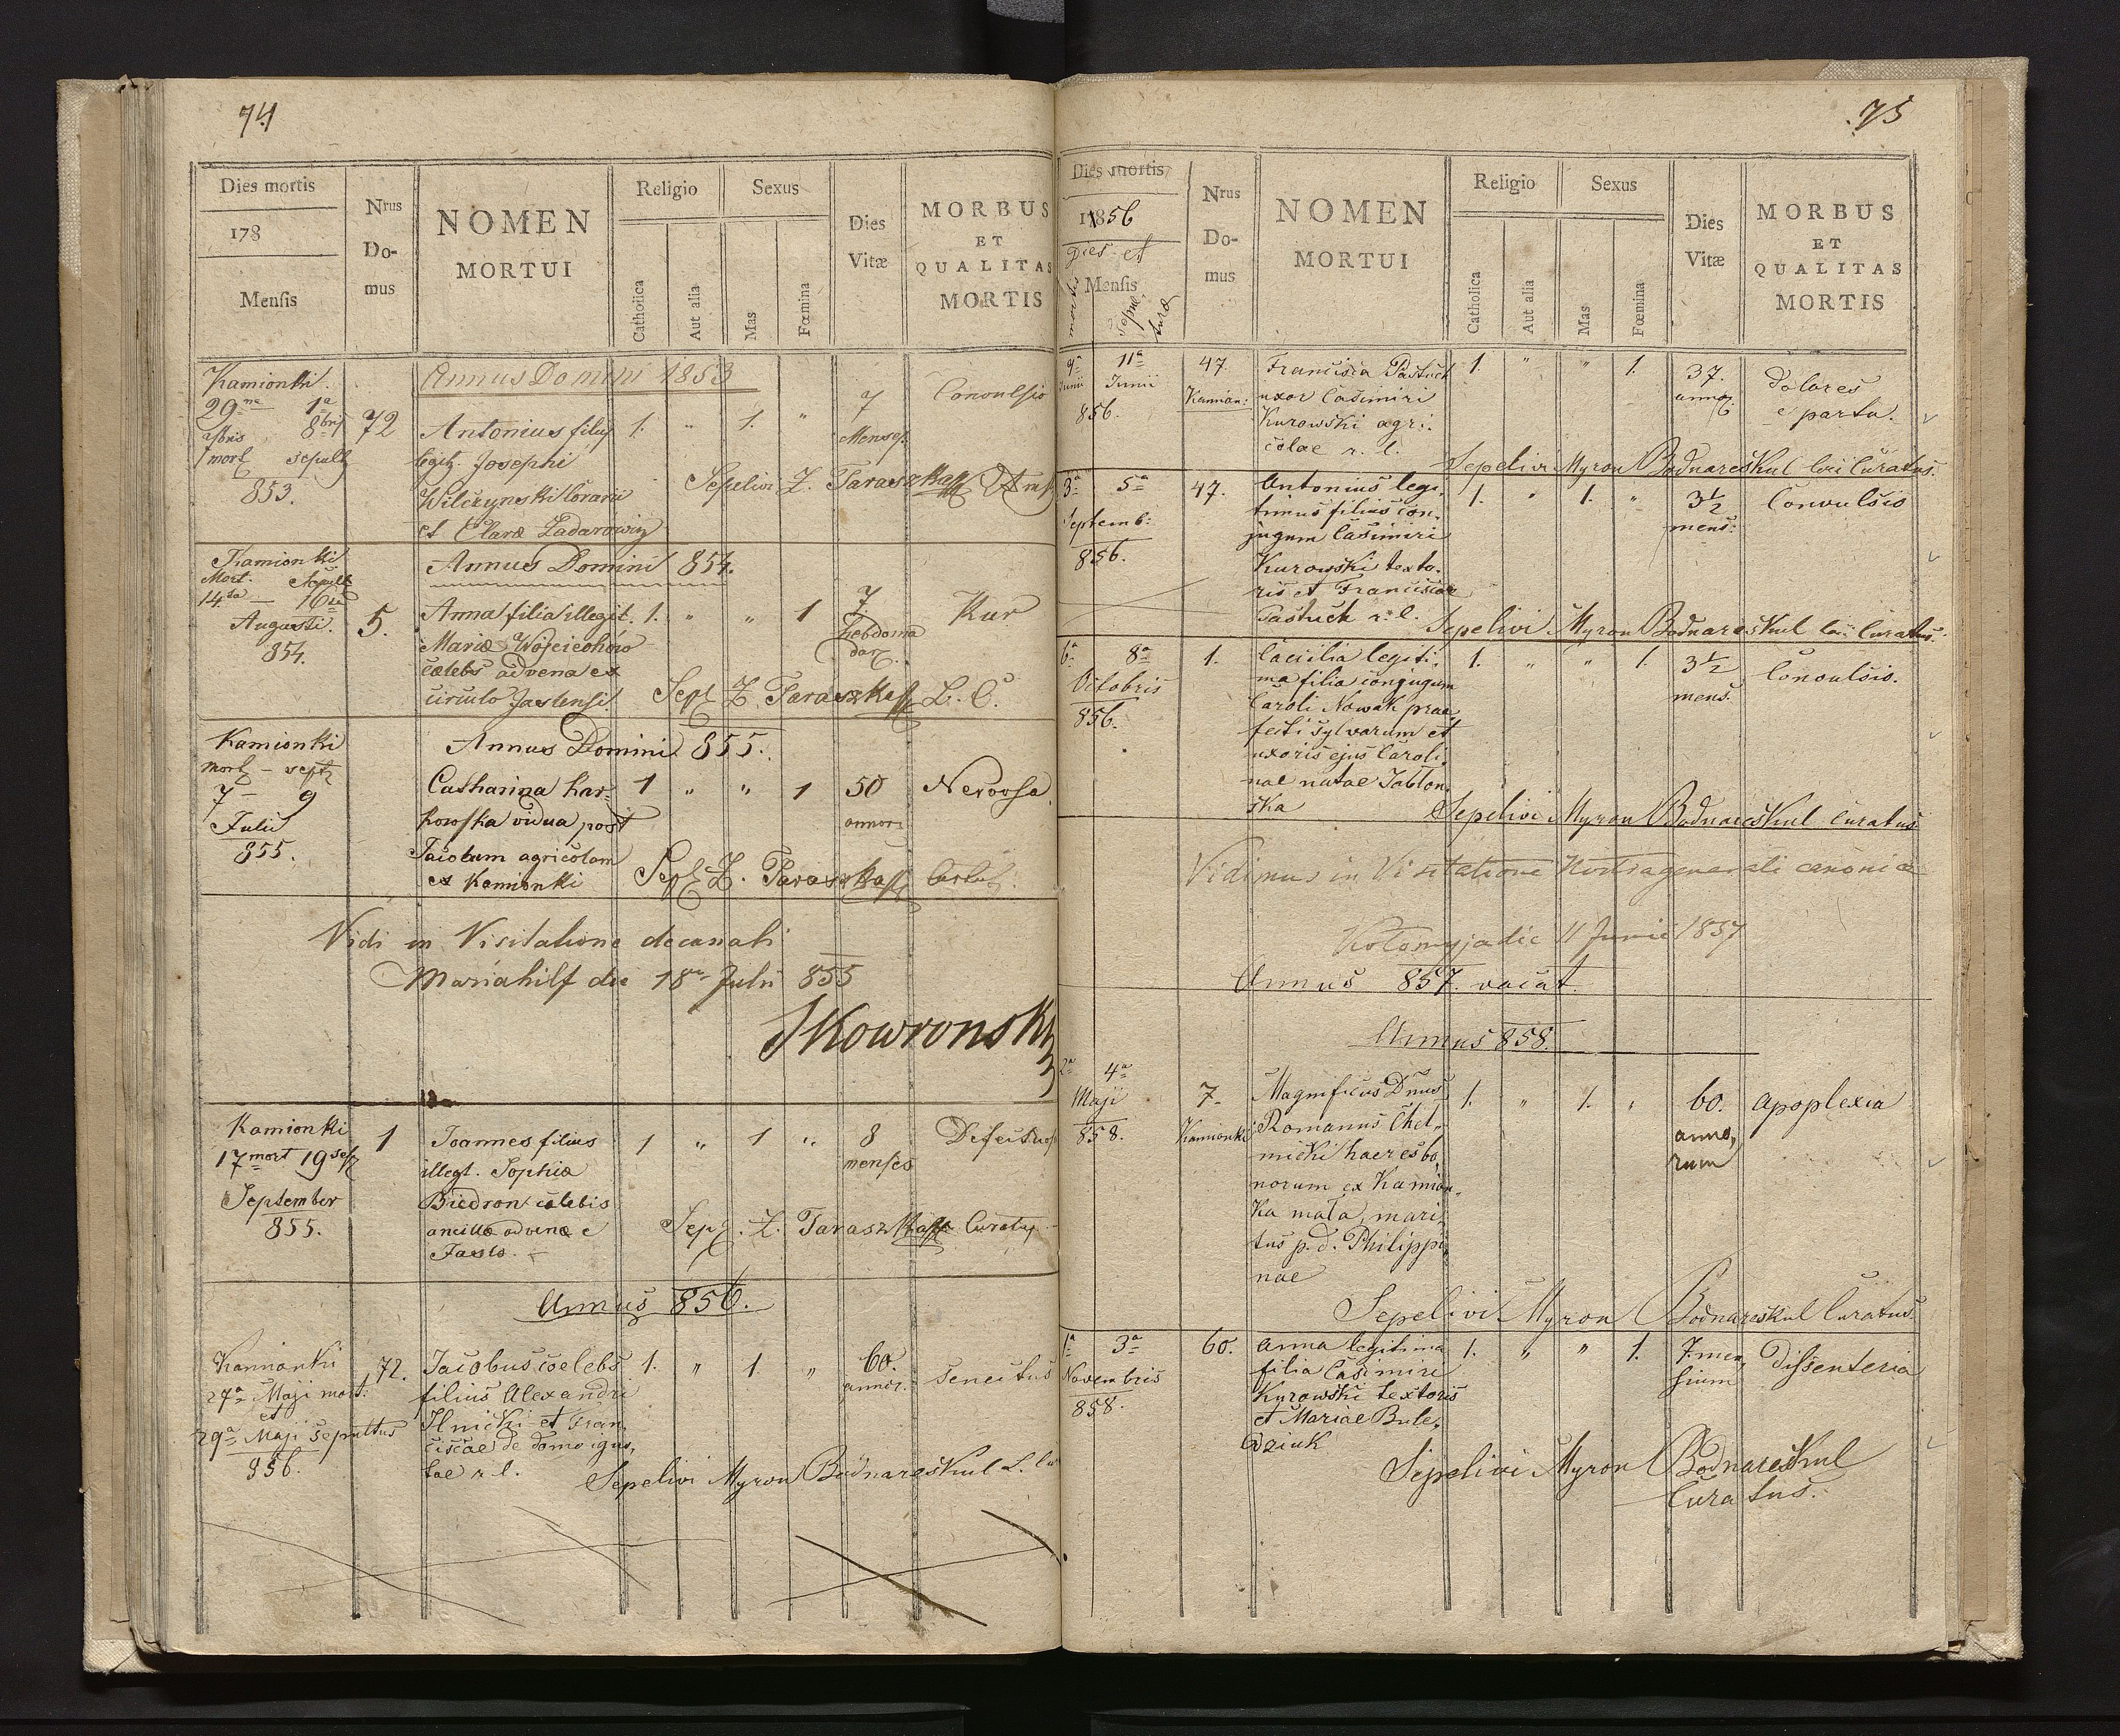 74
Dies mortis
178
Mensis
Nrus
Do-
mus
NOMEN
MORTUI
Religio
Catholica
Aut alia
Sexus
Mas
Fœmina
Dies
Vitæ
MORBUS
ET
QUALITAS
MORTIS
Annus Domini 1853
Kamionki.
29na 1a
7bris 8bris
mort sepult
853.
72
Antonius filius
legit. Josephi
Wilczynski
et Claræ Zadarowicz
1. " 1. "
7
Menses
Convulsio
Sepelivi Z. Taraszka
Annus Domini 854.
Kamionki
Mort. Sepult
14ta — 16ta
Augusti.
854.
5.
Anna filia illegit.
Mariæ Wojciechów
cælebs advena ex
circulo Jaslensi.
1. " " 1
7
hebdoma
dar.
Kur
Sep. Z. Taraszka L. C.
Annus Domini 855.
Kamionki
mort — sept
7 — 9
Julii
855.
Catharina Har-
kowska vidua post
Jacobum agricolam
ex Kamionki
1 " " 1
50
annor.
Nervosa.
Sep. Z. Taraszka
Vidi in Visitatione decanali
Mariahilf die 18a Julii 855
Skowronski
Kamionki
17 mort 19 sep
September
855.
1
Joannes filius
illegt. Sophiæ
Biedron cælebis
ancillæ advenæ e
Jaslo.
1 " 1 "
8
menses
Sep. Z. Taraszka Curatus
Annus 856.
Kamionki
27a Maji mort:
et
29a Maji sepultus
856.
72.
Jacobus coelebs
filius Alexandri
Ilnicki et Fran-
ciscae de domo igno-
tae r. l.
1. " 1. "
60.
annor.
senectus
Sepelivi Myron Bodnareskul L. Cu
75
Dies mortis
1856
Dies et
Mensis
mortis
sepul
turæ
Nrus
Do-
mus
NOMEN
MORTUI
Religio
Catholica
Aut alia
Sexus
Mas
Fœmina
Dies
Vitæ
MORBUS
ET
QUALITAS
MORTIS
9a 11a
Junii Junii
856.
47.
Kamion:
Francisca Pastuch
uxor Casimiri
Kurowski agri-
colae r. l.
1. " " 1.
37.
annor.
dolores
e partu.
Sepelivi Myron Bodnareskul loci Curatus.
3a 5a
Septemb:
856.
47.
Antonius legi-
timus filius con-
jugum Casimiri
Kurowski texto-
ris et Franciscae
Pastuch r. l.
1. " 1. "
3½
mens:
Convulsio
Sepelivi Myron Bodnareskul loci Curatus.
6a 8a
Octobris
856.
1.
Caecilia legiti-
ma filia conjugum
Caroli Nowak prae-
fecti sylvarum et
uxoris ejus Caroli-
nae natae Jablon-
ska
1. " " 1.
3½
mens.
Convulsio.
Sepelivi Myron Bodnareskul Curatus
Vidimus in Visitatione Nostra generali canonica
Kołomyja die 11 Junii 1857
Annus 857. vacat.
Annus 858.
2a 4a
Maji
858.
7.
Kamionki
Magnificus Dnus
Romanus Chel-
micki haeres bo-
norum ex Kamion-
ka mała, mari-
tus p. d. Philippi-
nae
1. " 1. "
60.
anno-
rum
apoplexia
Sepelivi Myron Bodnareskul Curatus
1a 3a
Novembris
858.
60.
Anna legitima
filia Casimiri
Kurowski textoris
et Mariae Bule-
dziuk
1. " " 1.
7. men-
sium
dissenteria
Sepelivi Myron Bodnareskul
Curatus.